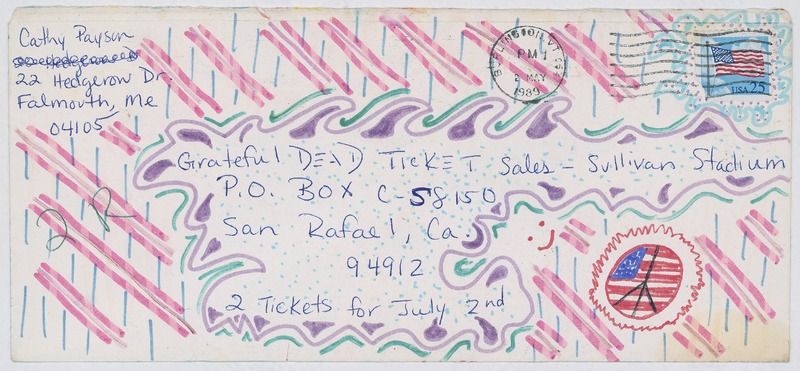 Cathy Payson
22 Hedgerow Dr.
Falmouth, Me
04105
BURLINGTON, VT
PM
2 MAY
1989
USA 25
Grateful DEAD TickET Sales - Sullivan Stadium
P.O. Box C-S8150
San Rafael, Ca.
94912
2 Tickets for July 2nd
:)
2 R